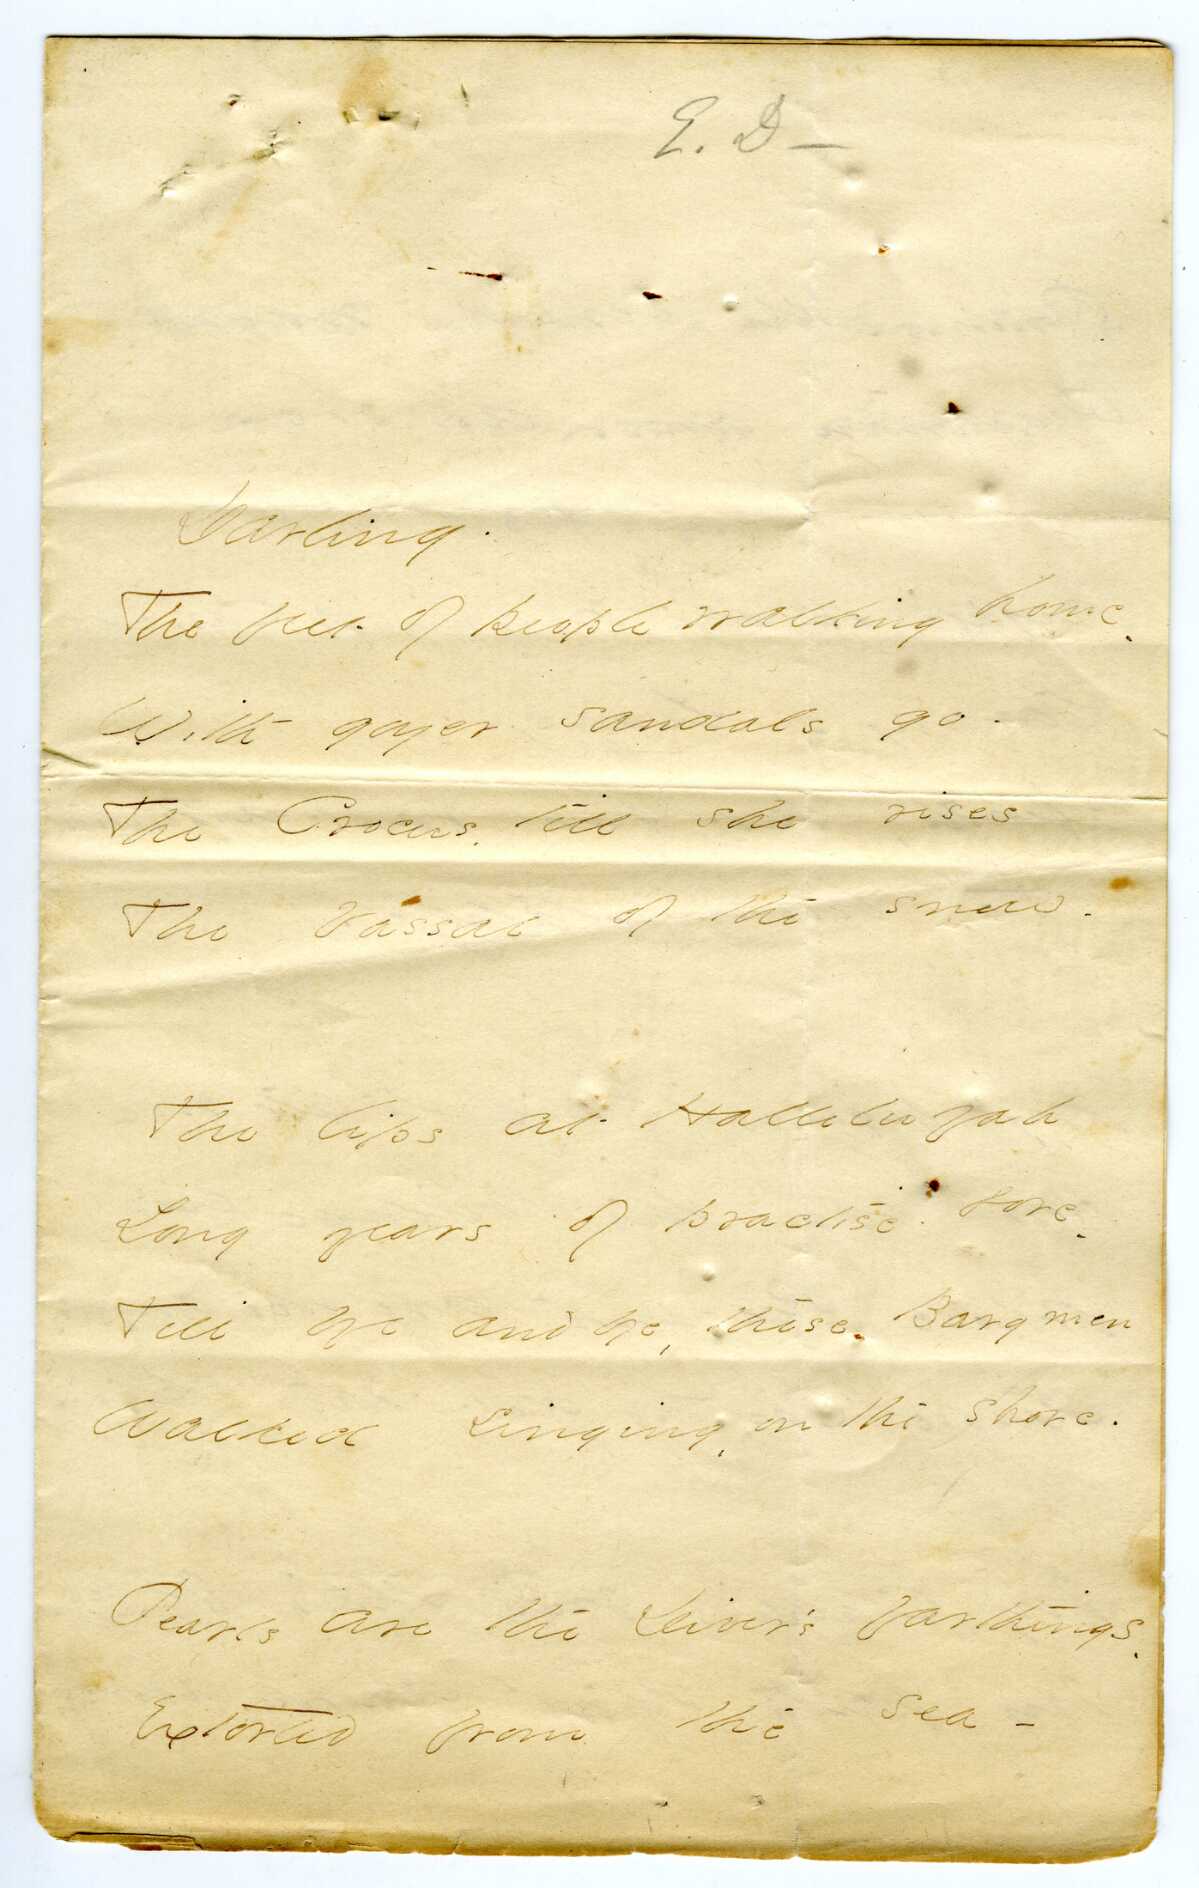 E. D —
Darling.
The feet of people walking home,
With gayer sandals go -
The Crocus, till she rises
The Vassal of the snow.
The lips at Hallelujah
Long years of practise bore,
Till bye and bye, these, Bargmen
Walked singing, on the shore.
Pearls are the Diver's farthings,
Extorted from the sea -